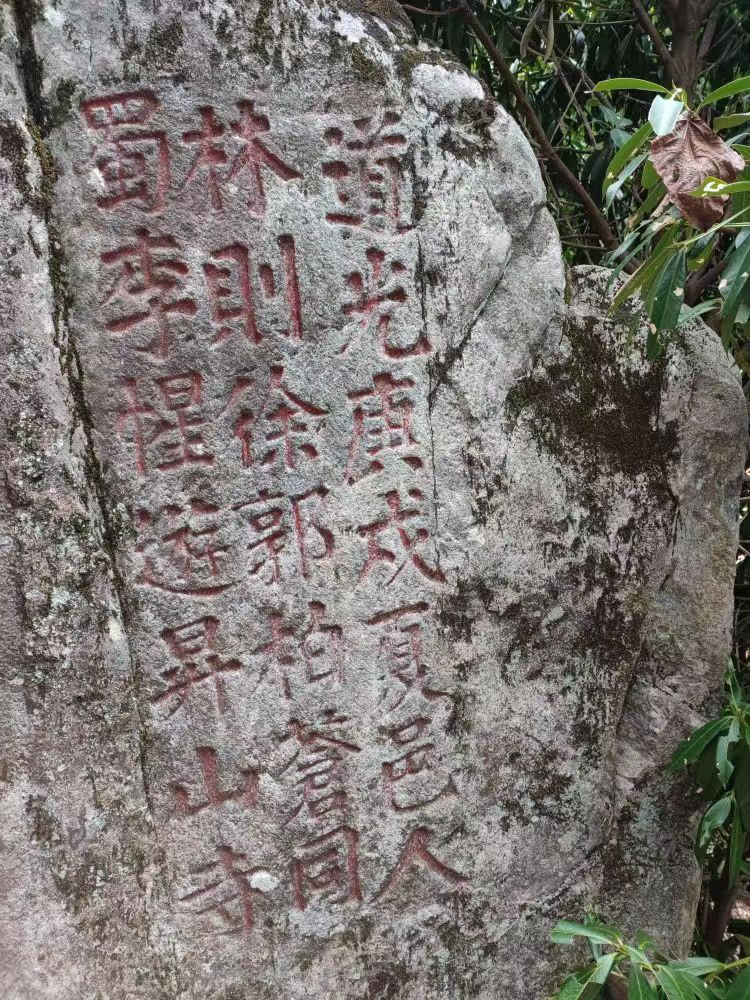 道光庚戌夏邑人
林則徐郭柏蒼同
蜀李惺遊昇山寺